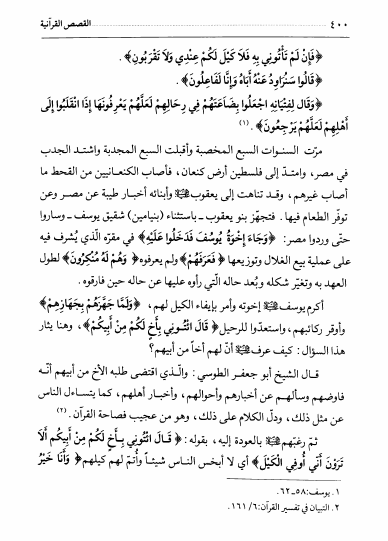 ٤٠٠ القصص القرآنية
﴿فَإِنْ لَمْ تَأْتُونِي بِهِ فَلاَ كَيْلَ لَكُمْ عِنْدِي وَلاَ تَقْرَبُونِ﴾.
﴿قَالُوا سَنُرَاوِدُ عَنْهُ أَبَاهُ وَإِنَّا لَفَاعِلُونَ﴾.
﴿وَقَالَ لِفِتْيَانِهِ اجْعَلُوا بِضَاعَتَهُمْ فِي رِحَالِهِمْ لَعَلَّهُمْ يَعْرِفُونَهَا إِذَا انْقَلَبُوا إِلَى
أَهْلِهِمْ لَعَلَّهُمْ يَرْجِعُونَ﴾.(١)
مرّت السنوات السبع المخصبة وأقبلت السبع المجدبة واشتد الجدب
في مصر، وامتدّ إلى فلسطين أرض كنعان، فأصاب الكنعانيين من القحط ما
أصاب غيرهم، وقد تناهت إلى يعقوب وأبنائه أخبار طيبة عن مصر وعن
توفّر الطعام فيها. فتجهّز بنو يعقوب ـ باستثناء (بنيامين) شقيق يوسف ـ وساروا
حتّى وردوا مصر: ﴿وَجَاءَ إِخْوَةُ يُوسُفَ فَدَخَلُوا عَلَيْهِ﴾ في مقرّه الّذي يُشرف فيه
على عملية بيع الغلال وتوزيعها ﴿فَعَرَفَهُمْ﴾ ولم يعرفوه ﴿وَهُمْ لَهُ مُنْكِرُونَ﴾ لطول
العهد به وتغيّر شكله وبُعد حاله التي رأوه عليها عن حاله حين فارقوه.
أكرم يوسف إخوته وأمر بإيفاء الكيل لهم، ﴿وَلَمَّا جَهَّزَهُمْ بِجَهَازِهِمْ﴾
وأوقر ركائبهم، واستعدّوا للرحيل ﴿قَالَ ائْتُونِي بِأَخٍ لَكُمْ مِنْ أَبِيكُمْ﴾، وهنا يثار
هذا السؤال: كيف عرف أنّ لهم أخاً من أبيهم؟
قـال الشيخ أبو جعفر الطوسي: والّذي اقتضى طلبه الأخ من أبيهم أنّه
فاوضهم وسألهم عن أخبارهم وأحوالهم، وأخبار أهلهم، كما يتساءل الناس
عن مثل ذلك، ودلّ الكلام على ذلك، وهو من عجيب فصاحة القرآن.(٢)
ثمّ رغّبهم بالعودة إليه، بقوله: ﴿قَالَ ائْتُونِي بِأَخٍ لَكُمْ مِنْ أَبِيكُمْ أَلاَ
تَرَوْنَ أَنِّي أُوفِي الْكَيْلَ﴾ أي لا أبخس الناس شيئاً وأُتمّ لهم كيلهم ﴿وَأَنَا خَيْرُ
١. يوسف:٥٨ـ٦٢.
٢. التبيان في تفسير القرآن:٦/١٦١.